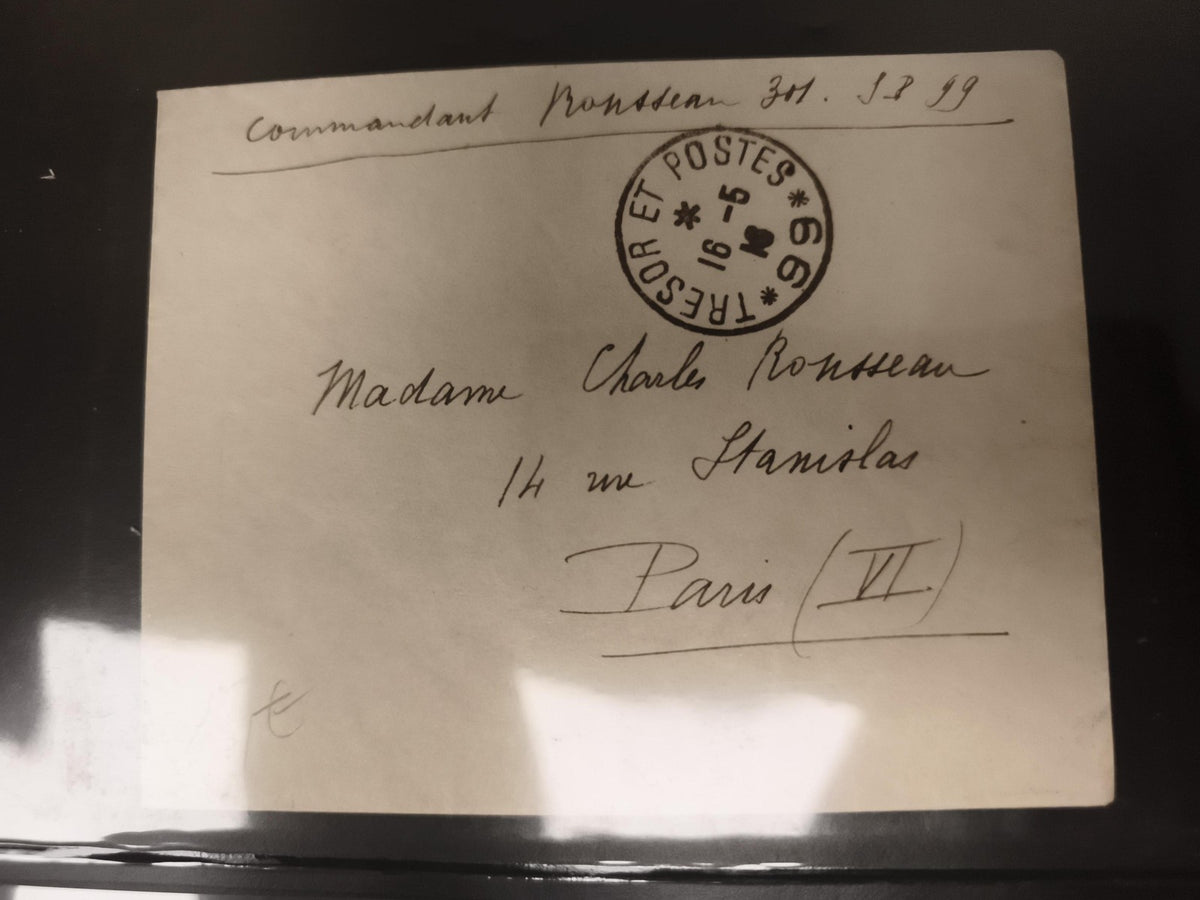 Commandant Rousseau 301. S.P. 99
TRESOR ET POSTES * 99 *
*
16 -5
Madame Charles Rousseau
14 rue Stanislas
Paris (VI)